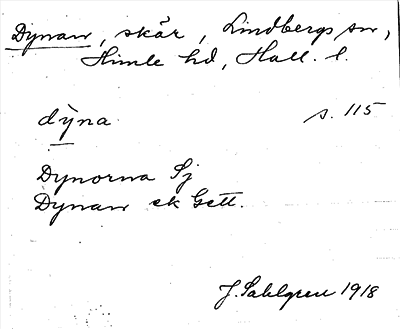 Dynan, skär, Lindbergs sn,
Himle hd, Hall. l.
dy̆na s. 115
Dynorna Sj
Dynan ek Gett.
J. Sahlgren 1918